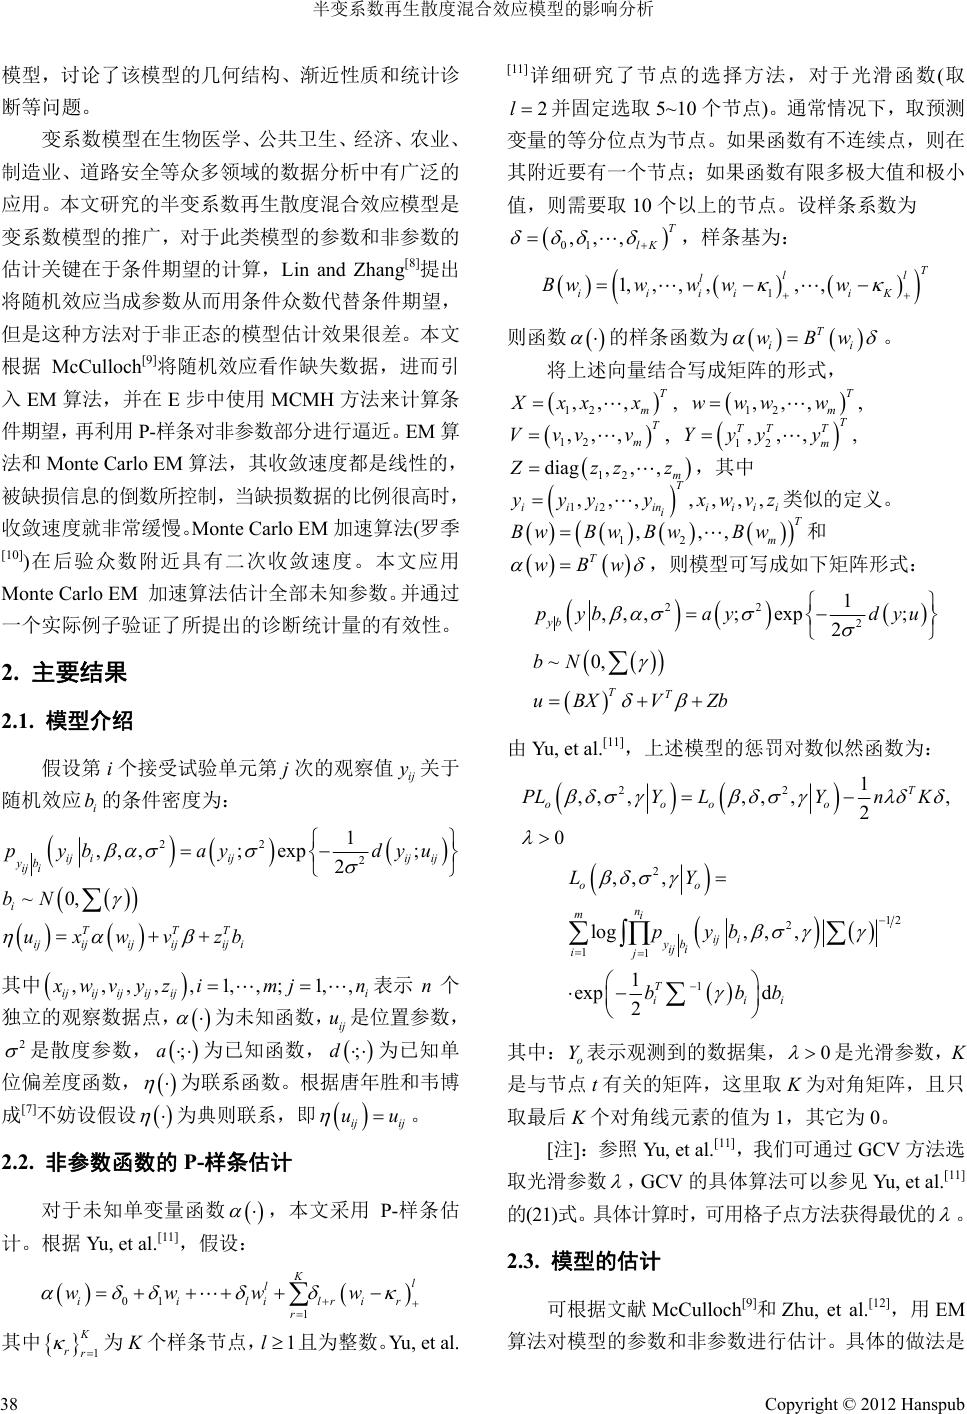 半变系数再生散度混合效应模型的影响分析
模型，讨论了该模型的几何结构、渐近性质和统计诊
断等问题。
变系数模型在生物医学、公共卫生、经济、农业、
制造业、道路安全等众多领域的数据分析中有广泛的
应用。本文研究的半变系数再生散度混合效应模型是
变系数模型的推广，对于此类模型的参数和非参数的
估计关键在于条件期望的计算，Lin and Zhang[8]提出
将随机效应当成参数从而用条件众数代替条件期望，
但是这种方法对于非正态的模型估计效果很差。本文
根据 McCulloch[9]将随机效应看作缺失数据，进而引
入 EM 算法，并在 E 步中使用 MCMH 方法来计算条
件期望，再利用 P-样条对非参数部分进行逼近。EM 算
法和 Monte Carlo EM 算法，其收敛速度都是线性的，
被缺损信息的倒数所控制，当缺损数据的比例很高时，
收敛速度就非常缓慢。Monte Carlo EM 加速算法(罗季
[10])在后验众数附近具有二次收敛速度。本文应用
Monte Carlo EM 加速算法估计全部未知参数。并通过
一个实际例子验证了所提出的诊断统计量的有效性。
2. 主要结果
2.1. 模型介绍
假设第 i 个接受试验单元第 j 次的观察值 y_{ij} 关于
随机效应 b_i 的条件密度为：
p_{y_{ij}|b_i}(y_{ij}|b_i, β, α, σ²) = a(y_{ij}; σ²) exp{−\frac{1}{2σ²} d(y_{ij}; u_{ij})}
b_i ~ N(0, ∑(γ))
η(u_{ij}) = x_{ij}^T α(w_{ij}) + v_{ij}^T β + z_{ij}^T b_i
其中(x_{ij}, w_{ij}, v_{ij}, y_{ij}, z_{ij}), i = 1, ⋯, m; j = 1, ⋯, n_i 表示 n 个
独立的观察数据点，α(·) 为未知函数，u_{ij} 是位置参数，
σ² 是散度参数，a(·;·) 为已知函数，d(·;·) 为已知单
位偏差度函数，η(·) 为联系函数。根据唐年胜和韦博
成[7]不妨设假设 η(·) 为典则联系，即 η(u_{ij}) = u_{ij}。
2.2. 非参数函数的 P-样条估计
对于未知单变量函数 α(·)，本文采用 P-样条估
计。根据 Yu, et al.[11]，假设：
α(w_i) = δ_0 + δ_1 w_i + ⋯ + δ_l w_i^l + ∑_{r=1}^{K} δ_{l+r}(w_i − κ_r)_+^l
其中 {κ_r}_{r=1}^K 为 K 个样条节点，l ≥ 1 且为整数。Yu, et al.
[11]详细研究了节点的选择方法，对于光滑函数(取
l = 2 并固定选取 5~10 个节点)。通常情况下，取预测
变量的等分位点为节点。如果函数有不连续点，则在
其附近要有一个节点；如果函数有限多极大值和极小
值，则需要取 10 个以上的节点。设样条系数为
δ = (δ_0, δ_1, ⋯, δ_{l+K})^T，样条基为：
B(w_i) = (1, w_i, ⋯, w_i^l, (w_i − κ_1)_+^l, ⋯, (w_i − κ_K)_+^l)^T
则函数 α(·) 的样条函数为 α(w_i) = B^T(w_i)δ。
将上述向量结合写成矩阵的形式，
X = (x_1, x_2, ⋯, x_m)^T, w = (w_1, w_2, ⋯, w_m)^T,
V = (v_1, v_2, ⋯, v_m)^T, Y = (y_1^T, y_2^T, ⋯, y_m^T)^T,
Z = diag(z_1, z_2, ⋯, z_m)，其中
y_i = (y_{i1}, y_{i2}, ⋯, y_{in_i})^T, x_i, w_i, v_i, z_i 类似的定义。
B(w) = (B(w_1), B(w_2), ⋯, B(w_m))^T 和
α(w) = B^T(w)δ，则模型可写成如下矩阵形式：
p_{y|b}(y|b, β, α, σ²) = a(y; σ²) exp{−\frac{1}{2σ²} d(y; u)}
b ~ N(0, ∑(γ))
u = (BX)^T δ + V^T β + Zb
由 Yu, et al.[11]，上述模型的惩罚对数似然函数为：
PL_o(β, δ, σ², γ|Y_o) = L_o(β, δ, σ², γ|Y_o) − \frac{1}{2} nλδ^T Kδ,
λ > 0
L_o(β, δ, σ², γ|Y_o) =
∑_{i=1}^{m} log ∫ ∏_{j=1}^{n_i} p_{y_{ij}|b_i}(y_{ij}|b_i, β, σ², γ)|∑(γ)|^{−1/2}
·exp(−\frac{1}{2} b_i^T ∑^{−1}(γ) b_i) db_i
其中：Y_o 表示观测到的数据集，λ > 0 是光滑参数，K
是与节点 t 有关的矩阵，这里取 K 为对角矩阵，且只
取最后 K 个对角线元素的值为 1，其它为 0。
[注]：参照 Yu, et al.[11]，我们可通过 GCV 方法选
取光滑参数 λ，GCV 的具体算法可以参见 Yu, et al.[11]
的(21)式。具体计算时，可用格子点方法获得最优的 λ。
2.3. 模型的估计
可根据文献 McCulloch[9]和 Zhu, et al.[12]，用 EM
算法对模型的参数和非参数进行估计。具体的做法是
38
Copyright © 2012 Hanspub